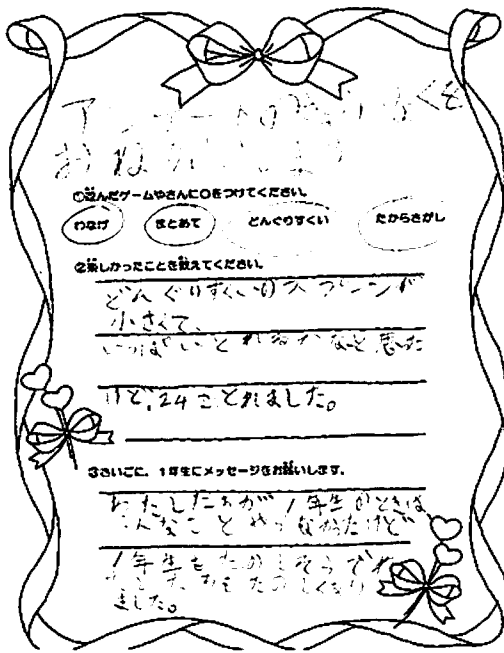 アンケートのきょうりょくを
おねがいします
①遊んだゲームやさんに○をつけてください。
わなげ まとあて どんぐりすくい たからさがし
②楽しかったことを教えてください。
どんぐりすくいのスプーンが
小さくて、
いっぱいとれるかなと思った
けど、24ことれました。
③さいごに、1年生にメッセージをお願いします。
わたしたちが1年生のときは
こんなことやってなかたけど
1年生もたのしそうで
たのしくなり
ました。